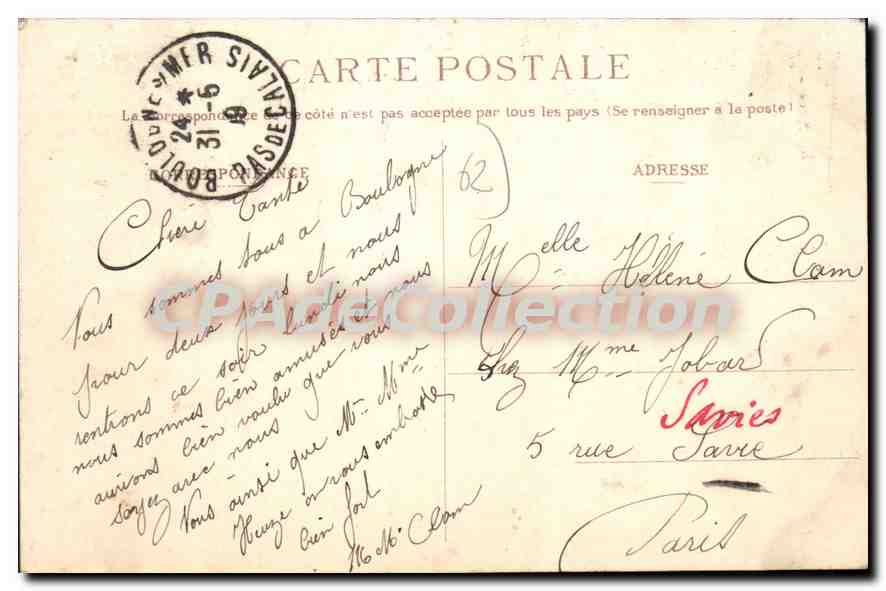 CARTE POSTALE
La Correspondance de ce côté n'est pas acceptée par tous les pays (Se renseigner a la poste)
BOULOGNE S MER PAS DE CALAIS
24 *
31 -5
09
CORRESPONDANCE
62
Chère Tante
Nous sommes tous a Boulogne
pour deux jours et nous
rentrons ce soir lundi nous
nous sommes bien amusés et nous
aurions bien voulu que vous
soyez avec nous
Nous ainsi que Mr Mme
Heuze on vous embrasse
bien fort
M Mr Clam
ADRESSE
Melle Hélène Clam
chez Mme Jobard
Savies
5 rue Savie
Paris
CPAdeCollection